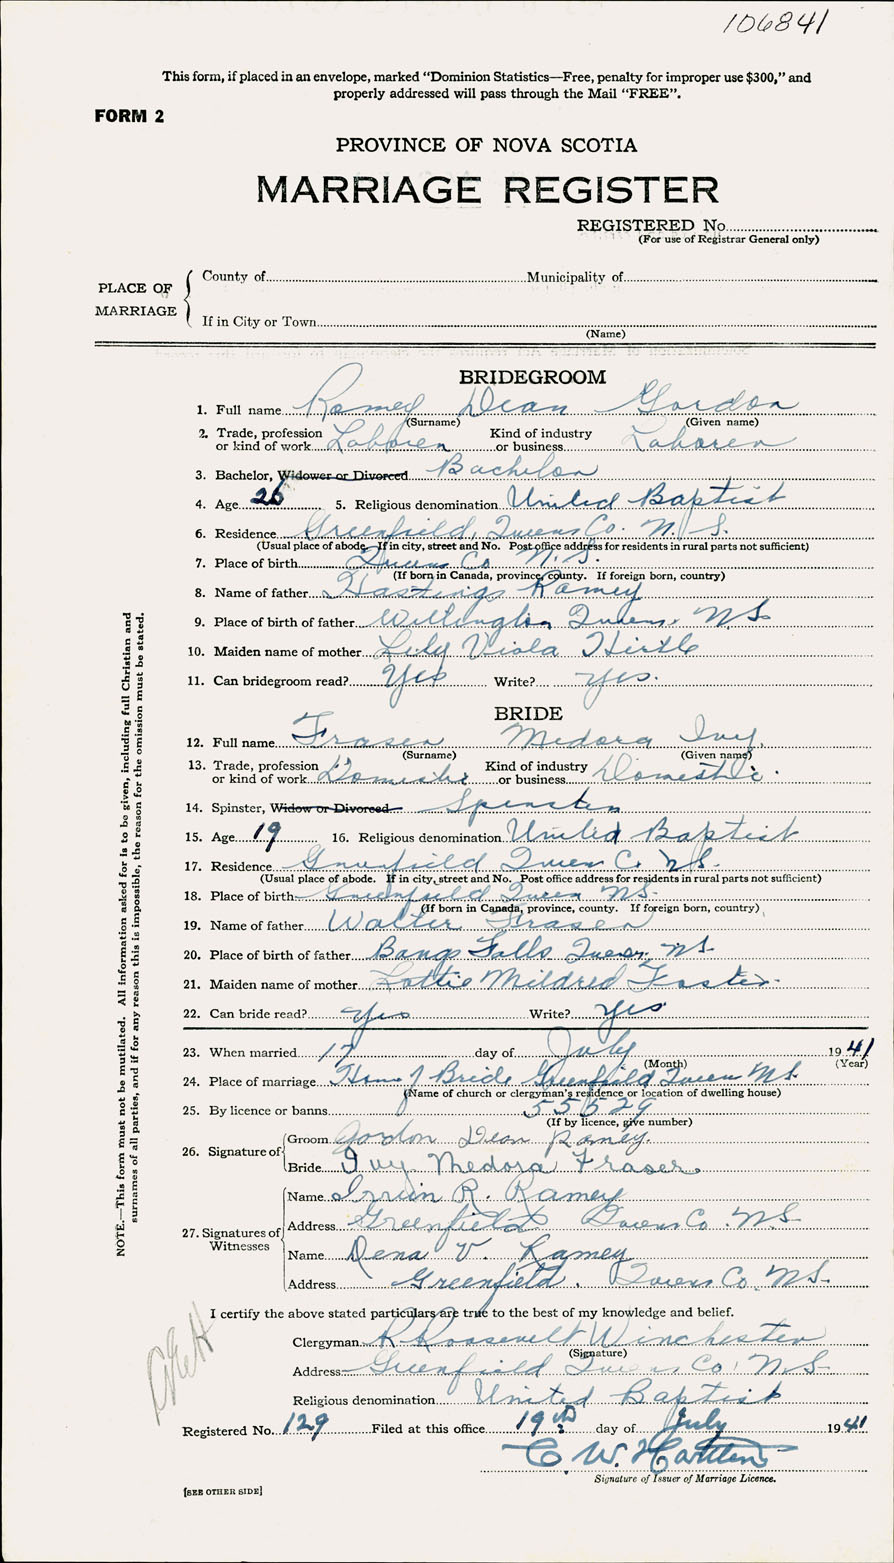 106841
This form, if placed in an envelope, marked “Dominion Statistics—Free, penalty for improper use $300,” and
properly addressed will pass through the Mail “FREE”.
FORM 2
PROVINCE OF NOVA SCOTIA
MARRIAGE REGISTER
REGISTERED No
(For use of Registrar General only)
PLACE OF MARRIAGE
County of Municipality of
If in City or Town
(Name)
BRIDEGROOM
1. Full name Ramey Dean Gordon
(Surname) (Given name)
2. Trade, profession or kind of work Laborer Kind of industry or business Laborer
3. Bachelor, Widower or Divorced Bachelor
4. Age 26 5. Religious denomination United Baptist
6. Residence Greenfield, Queens Co. N. S.
(Usual place of abode. If in city, street and No. Post office address for residents in rural parts not sufficient)
7. Place of birth Queens Co N. S.
(If born in Canada, province, county. If foreign born, country)
8. Name of father Hastings Ramey
9. Place of birth of father Queens N S
10. Maiden name of mother Lily Viola Hirtle
11. Can bridegroom read? Yes Write? Yes.
BRIDE
12. Full name Fraser Medora Ivy.
(Surname) (Given name)
13. Trade, profession or kind of work Domestic Kind of industry or business Domestic.
14. Spinster, Widow or Divorced Spinster
15. Age 19 16. Religious denomination United Baptist
17. Residence Greenfield Queen C. N S.
(Usual place of abode. If in city, street and No. Post office address for residents in rural parts not sufficient)
18. Place of birth Greenfield Queen NS.
(If born in Canada, province, county. If foreign born, country)
19. Name of father Walter Fraser
20. Place of birth of father Bangs Falls Queens NS
21. Maiden name of mother Lottie Mildred Foster
22. Can bride read? Yes Write? Yes
23. When married 17 day of July 1941
(Month) (Year)
24. Place of marriage Home of Bride Greenfield Queen N.S.
(Name of church or clergyman's residence or location of dwelling house)
25. By licence or banns 55529
(If by licence, give number)
26. Signature of
Groom Gordon Dean Ramey.
Bride Ivy Medora Fraser.
27. Signatures of Witnesses
Name R. Ramey
Address Greenfield Queens Co. N.S.
Name Dena V. Ramey
Address Greenfield, Queens Co. N.S.
I certify the above stated particulars are true to the best of my knowledge and belief.
Clergyman R. Roosevelt Winchester
(Signature)
Address Greenfield Queens Co. N.S.
Religious denomination United Baptist
Registered No. 129 Filed at this office 19th day of July 1941
C. W.
Signature of Issuer of Marriage Licence.
[SEE OTHER SIDE]
NOTE.—This form must not be mutilated. All information asked for is to be given, including full Christian and
surnames of all parties, and if for any reason this is impossible, the reason for the omission must be stated.